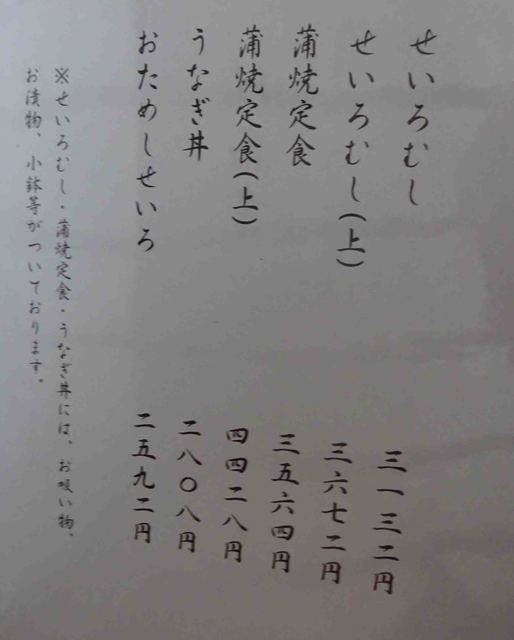 せいろむし 三一三二円
せいろむし(上) 三六七二円
蒲焼定食 三五六四円
蒲焼定食(上) 四四二八円
うなぎ丼 二八〇八円
おためしせいろ 二五九二円
※せいろむし・蒲焼定食・うなぎ丼には、お吸い物、
お漬物、小鉢等がついております。